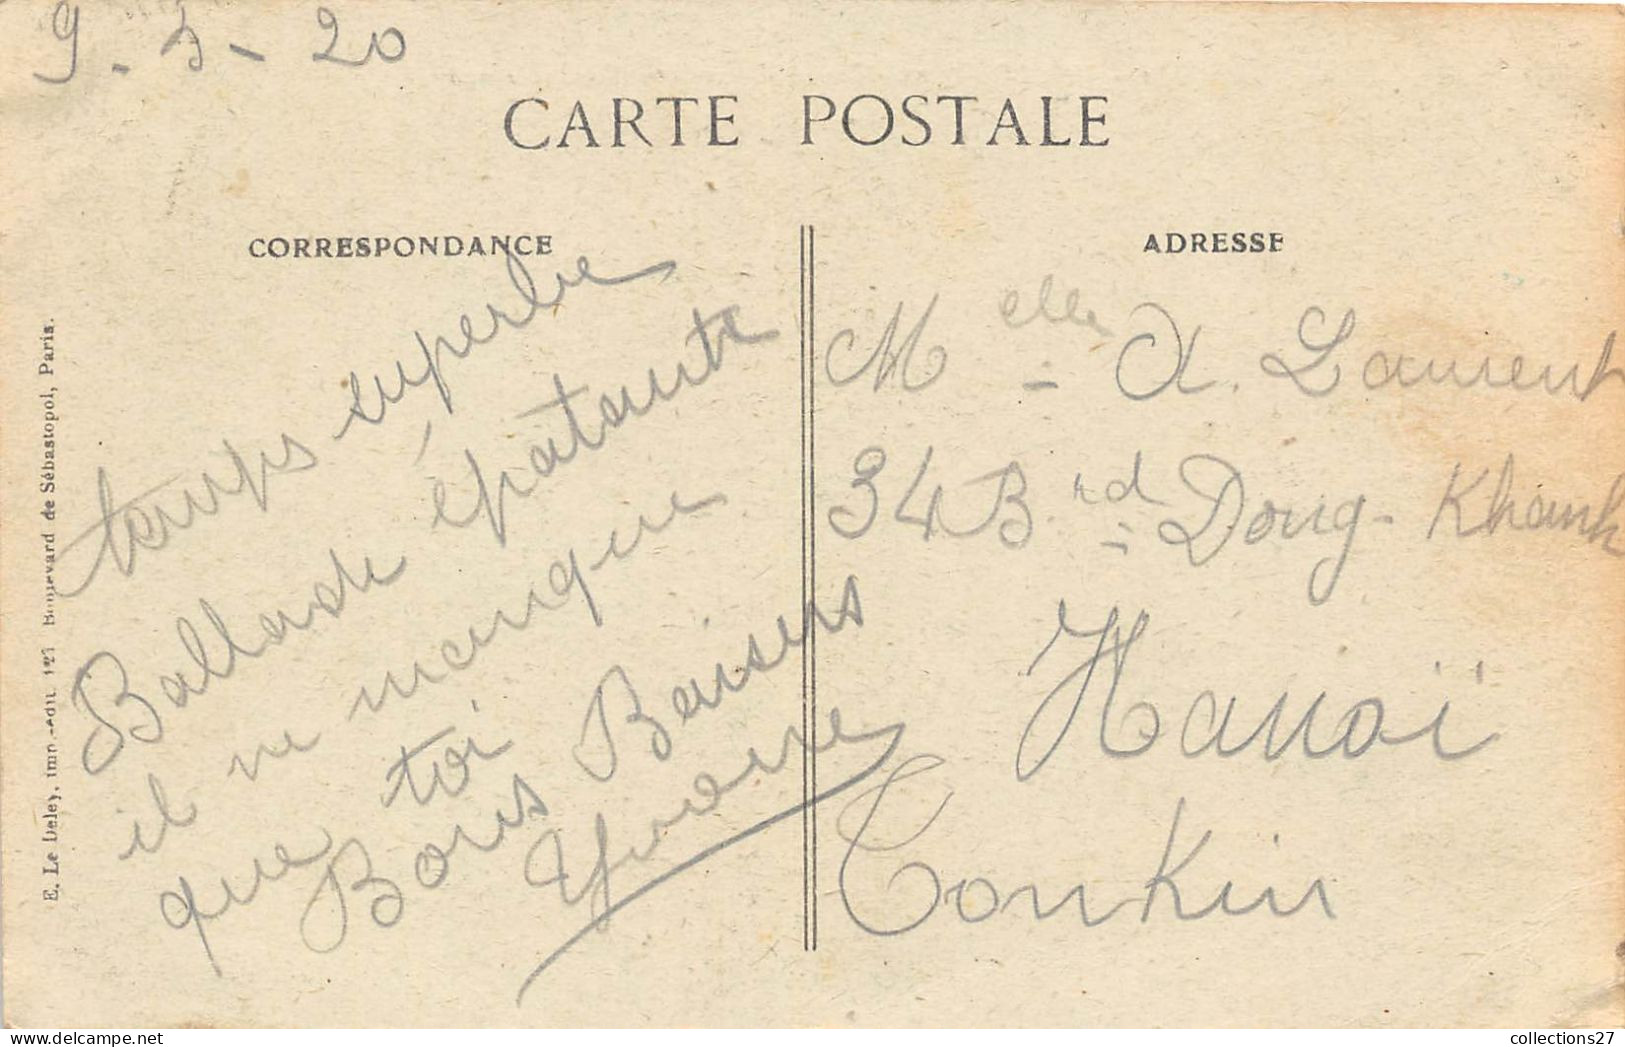 9-5-20
CARTE POSTALE
CORRESPONDANCE
temps superbe
Ballade épatante
il ne manque
que toi
Bons Baisers
Yvonne
ADRESSE
Melle A. Laurent
34 Brd Dong-Khanh
Hanoï
Tonkin
E. Le Deley, imp.-édit. 127 Boulevard de Sébastopol, Paris.
collections27